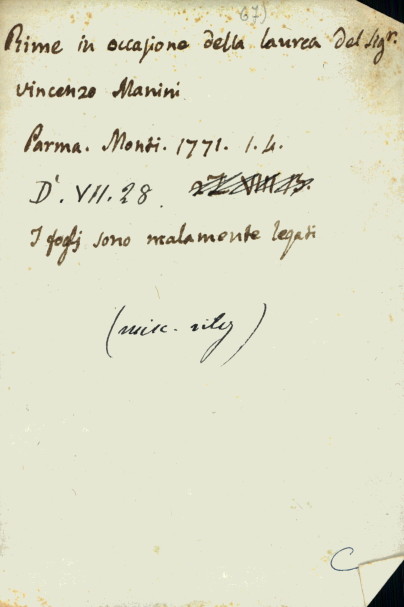 67)
Rime in occasione della laurea del Sigr.
Vincenzo Manini
Parma. Monti. 1771. 1.4.
D'. VII. 28.
I foglj sono malamente legati
(misc. rileg)
C